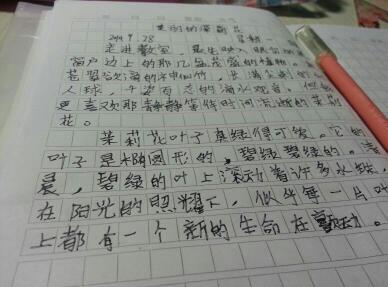 美丽的茉莉花
2014.9.28 星期一
走进教室,最先映入眼帘的是
窗户边上的那几盆茂盛的植物。
苍翠欲滴的 竹,长满尖刺的仙
人球,千姿百态的滴水观音。但我
更喜欢那静静等待时间流逝的茉莉
花。
茉莉花叶子真绿得可爱。它的
叶子是椭圆形的,碧绿碧绿的。清
晨,碧绿的叶上滚动着许多水珠,
在阳光的照耀下,似乎每一片叶
上都有一个新的生命在颤动。